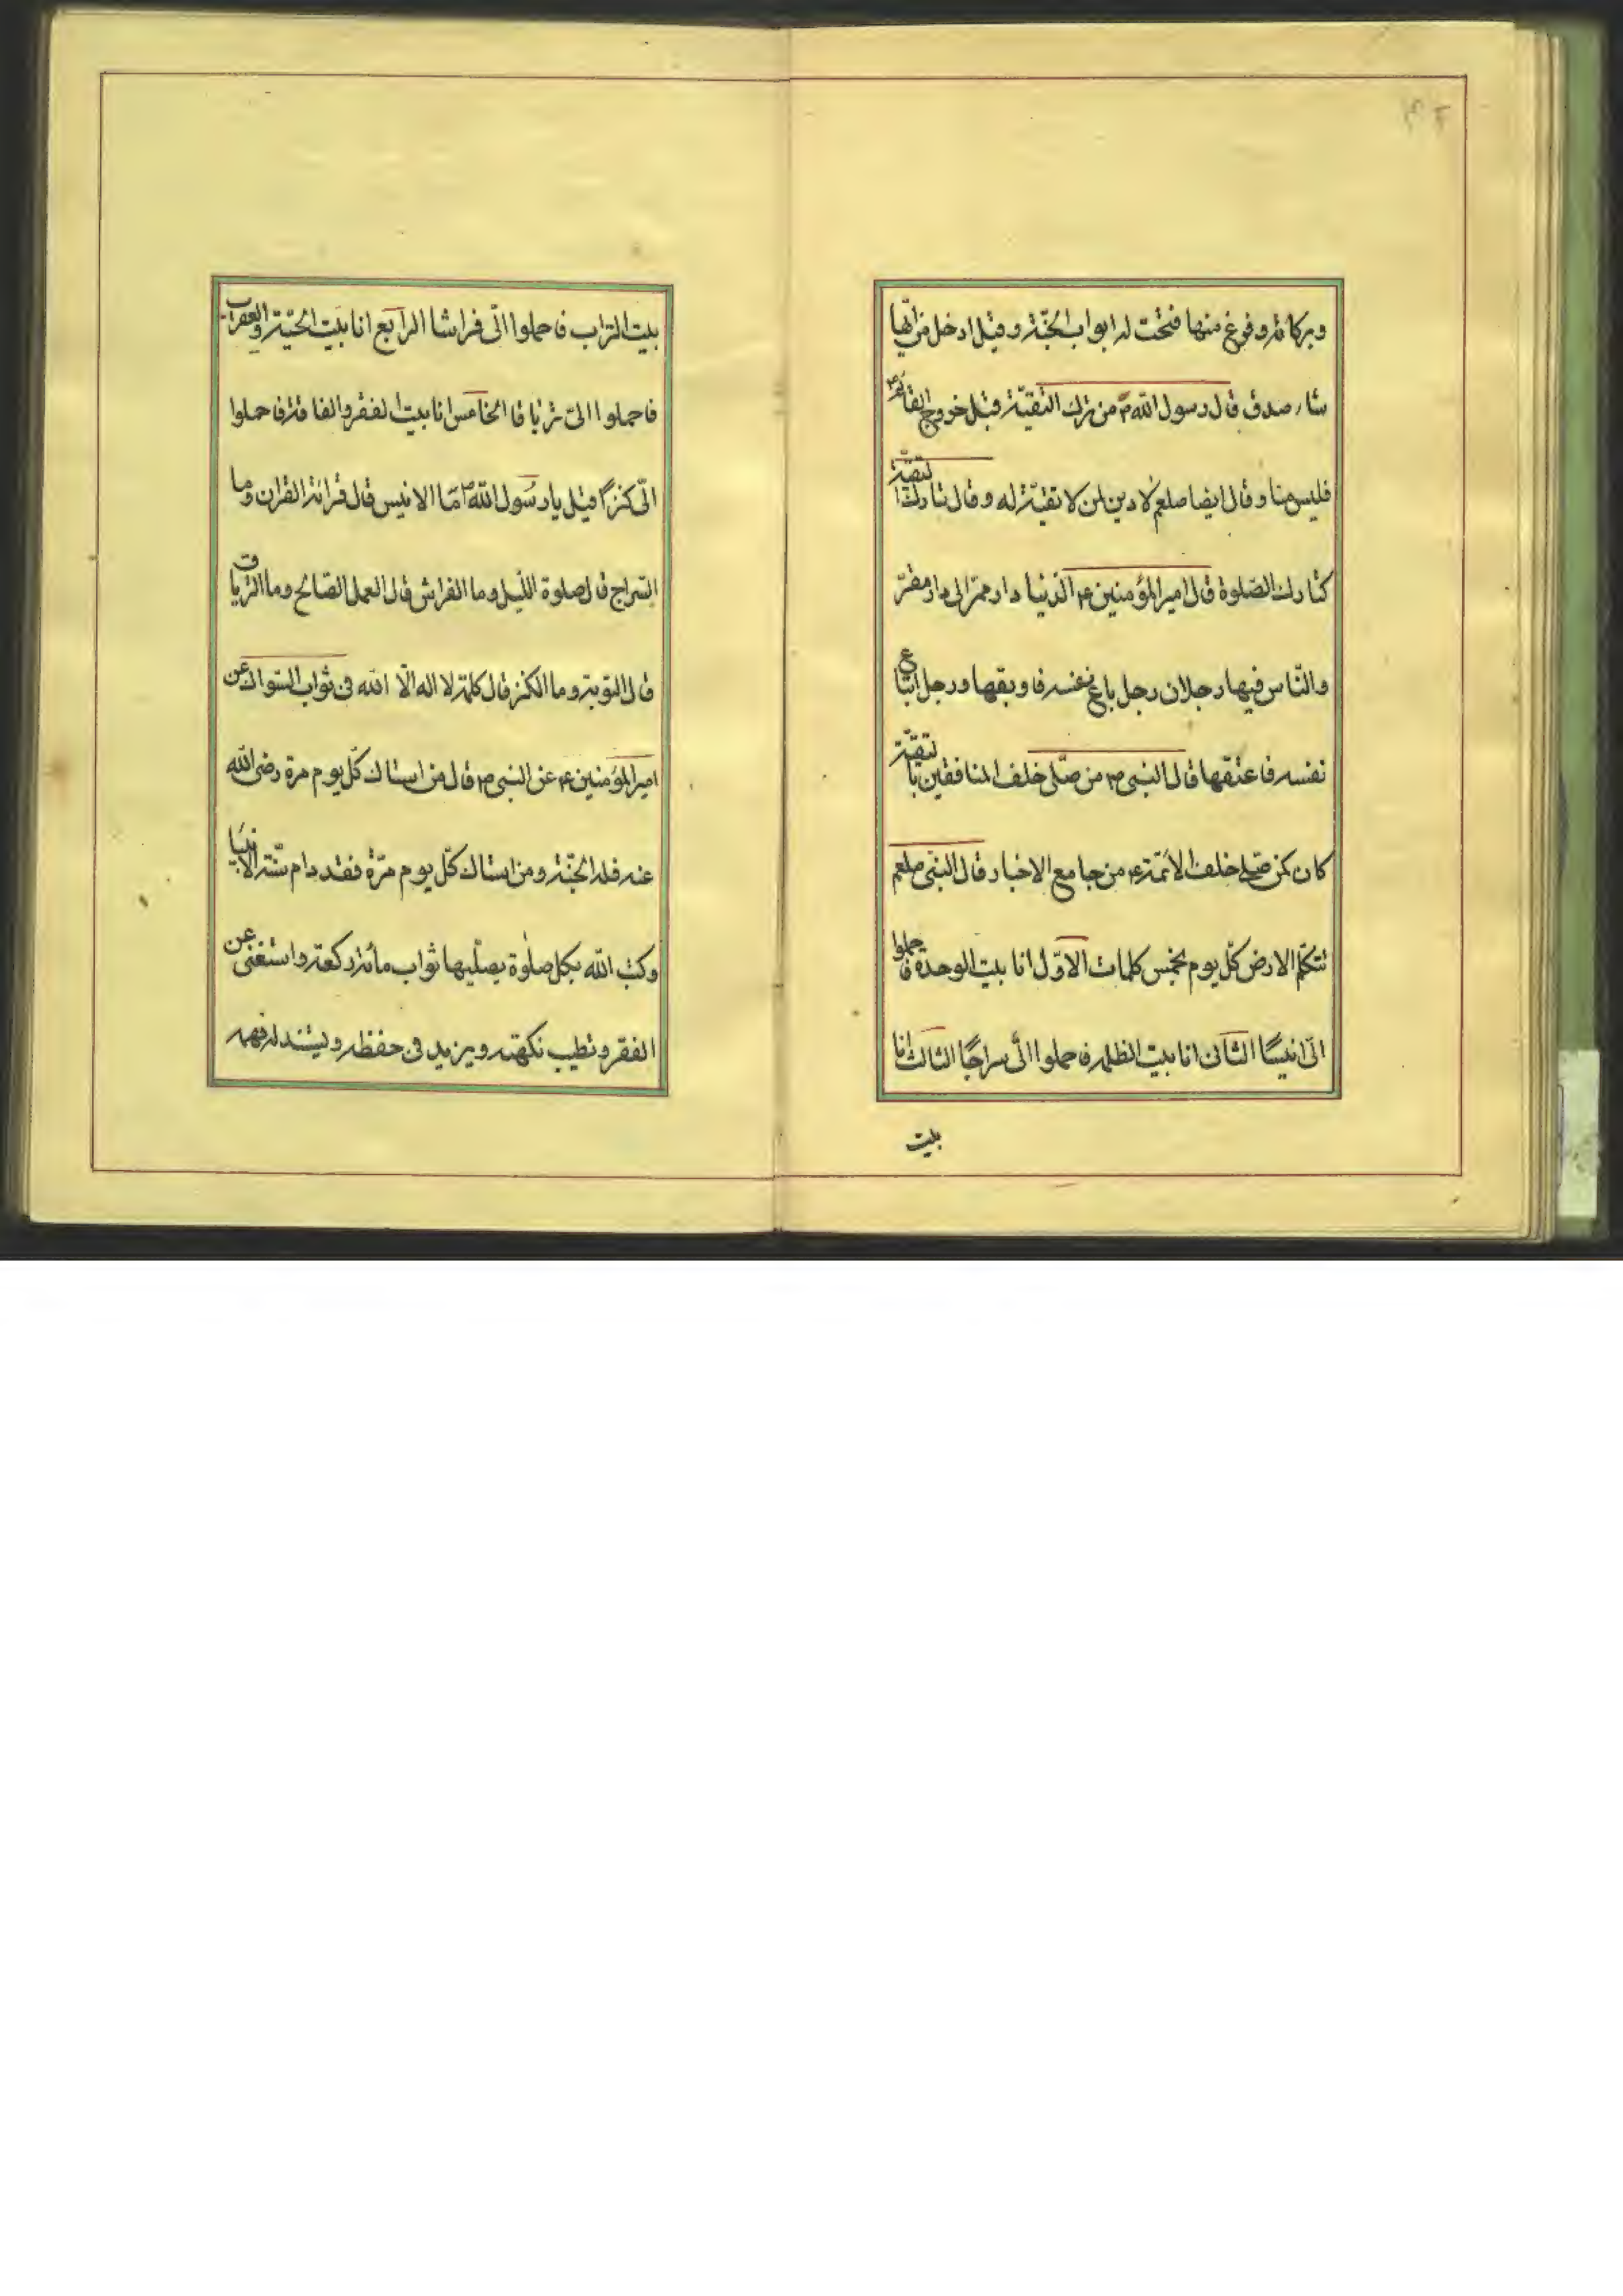 ۴۲
وبركاته وفرغ منها فتحت له ابواب الجنّة وقيل ادخل من ايّها
شاء صدق قال رسول الله ص من ترك التقيّة قبل خروج القائم
فليس منا وقال ايضا صلعم لا دين لمن لا تقيّة له وقال تارك التقيّة
كتارك الصّلوة قال امير المؤمنين ع الدّنيا دار ممرّ الى دار مقرّ
والنّاس فيها رجلان رجل باع نفسه فاوبقها ورجل ابتاع
نفسه فاعتقها قال النبى ص من صلّى خلف المنافقين بالتقيّة
كان كمن صلّى خلف الائمّة ع من جامع الاخبار قال النبّى صلعم
تتكلّم الارض كلّ يوم بخمس كلمات الاوّل انا بيت الوحدة فاحملوا
الىّ انيسًا الثانى انا بيت الظلمه فاحملوا الىّ سراجًا الثالث انا
بيت
بيت التراب فاحملوا الىّ فراشا الرابع انا بيت الحيّة والعقرب
فاحملوا الىّ ترياقا الخامس انا بيت الفقر والفاقة فاحملوا
الىّ كنزًا قيل يا رسول الله ص امّا الانيس قال قرائة القران وما
السّراج قال صلوة اللّيل وما الفراش قال العمل الصّالح وما الترياق
قال التوبة وما الكنز قال كلمة لا اله الّا الله فى ثواب السّواك عن
امير المؤمنين ع عن النبى ص قال من استاك كلّ يوم مرة رضى الله
عنه فله الجنّة ومن استاك كلّ يوم مرّة فقد دام سنّة الانبيا
وكتب الله بكل صلوة يصلّيها ثواب مائة ركعة واستغنى عن
الفقر وتطيب نكهته ويزيد فى حفظه ويشتد له فهمه